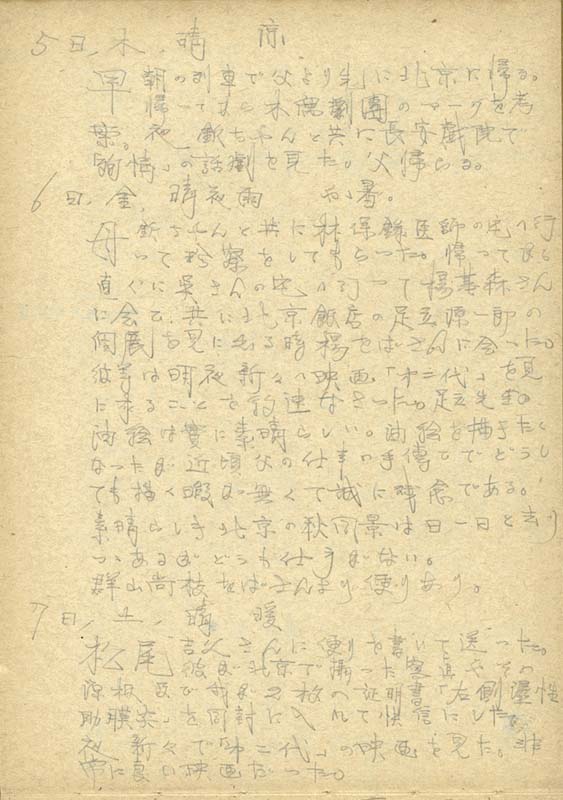 5日, 木, 晴 涼
早朝の列車で父より先に北京に帰る。
帰ってから木偶劇團のマークを考
案。夜、歆ちゃんと共に長安戯院で
「殉情」の話劇を見た。父帰らる。
6日, 金, 晴夜雨 やゝ暑。
母歆ちゃんと共に林保 医師の宅へ行
って診察をしてもらった。帰ってから
直ぐに呉さんの宅へ行って楊基森さん
に会て共に北京飯店の足立源一郎の
個展を見に出る時楊をばさんに会った。
彼等は明夜新々へ映画「第二代」を見
に来ることを約速なさった。足立先生の
油絵は實に素晴らしい。油絵を描きたく
なったが近頃父の仕事の手傳ひでどうし
ても描く暇が無くて誠に残念である。
素晴らしき北京の秋風景は日一日と去り
つゝあるがどうも仕方がない。
群山尚枝をばさんより便りあり。
7日, 土, 晴 暖
松尾吉次さんに便りを書いて送った。
彼が北京で撮った寫真やその
原板 及び我が 枚の証明書「左側湿性
肋膜炎」を同封に入れて快信にした。
夜、新々で「第二代」の映画を見た。非
常に良い映画だった。